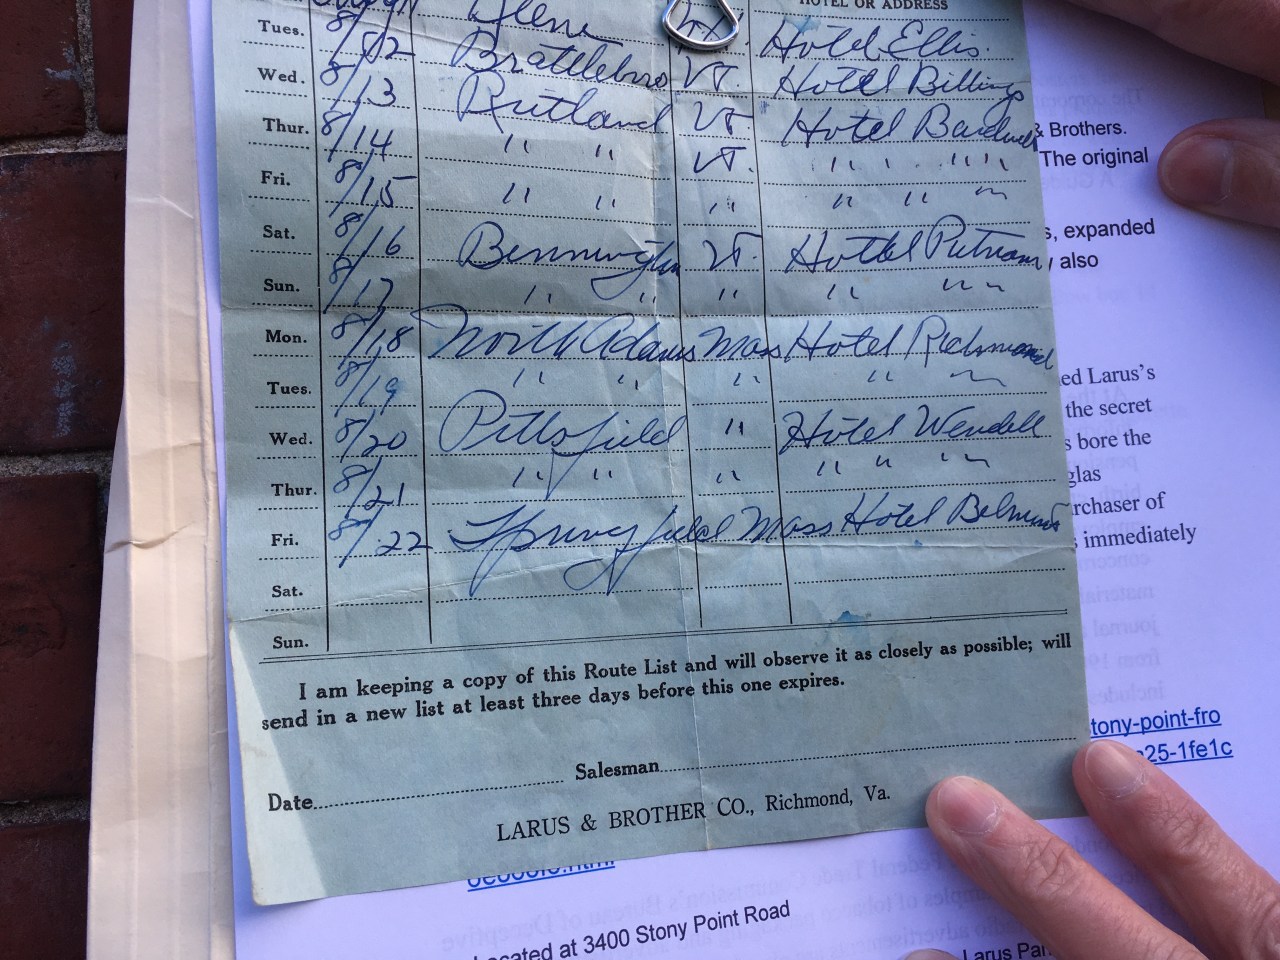 HOTEL OR ADDRESS
Tues. 8/12 Keene Hotel Ellis.
Wed. 8/13 Brattleboro VT. Hotel Billings
Thur. 8/14 Rutland VT Hotel Bardwell
Fri. 8/15 " " VT. " " " "
Sat. 8/16 " " " " " "
Sun. 8/17 Bennington VT. Hottel Putnam
" " " " " "
Mon. 8/18 North Adams Mass Hotel Richmond
Tues. 8/19 " " " " "
Wed. 8/20 Pittsfield " Hotel Wendell
Thur. 8/21 " " " " " "
Fri. 8/22 Springfield Mass Hotel Belmont
Sat.
Sun.
I am keeping a copy of this Route List and will observe it as closely as possible; will
send in a new list at least three days before this one expires.
Date Salesman
LARUS & BROTHER CO., Richmond, Va.
& Brothers.
The original
, expanded
also
ed Larus's
the secret
bore the
glas
rchaser of
immediately
tony-point-fro
25-1fe1c
ocated at 3400 Stony Point Road
Larus Par